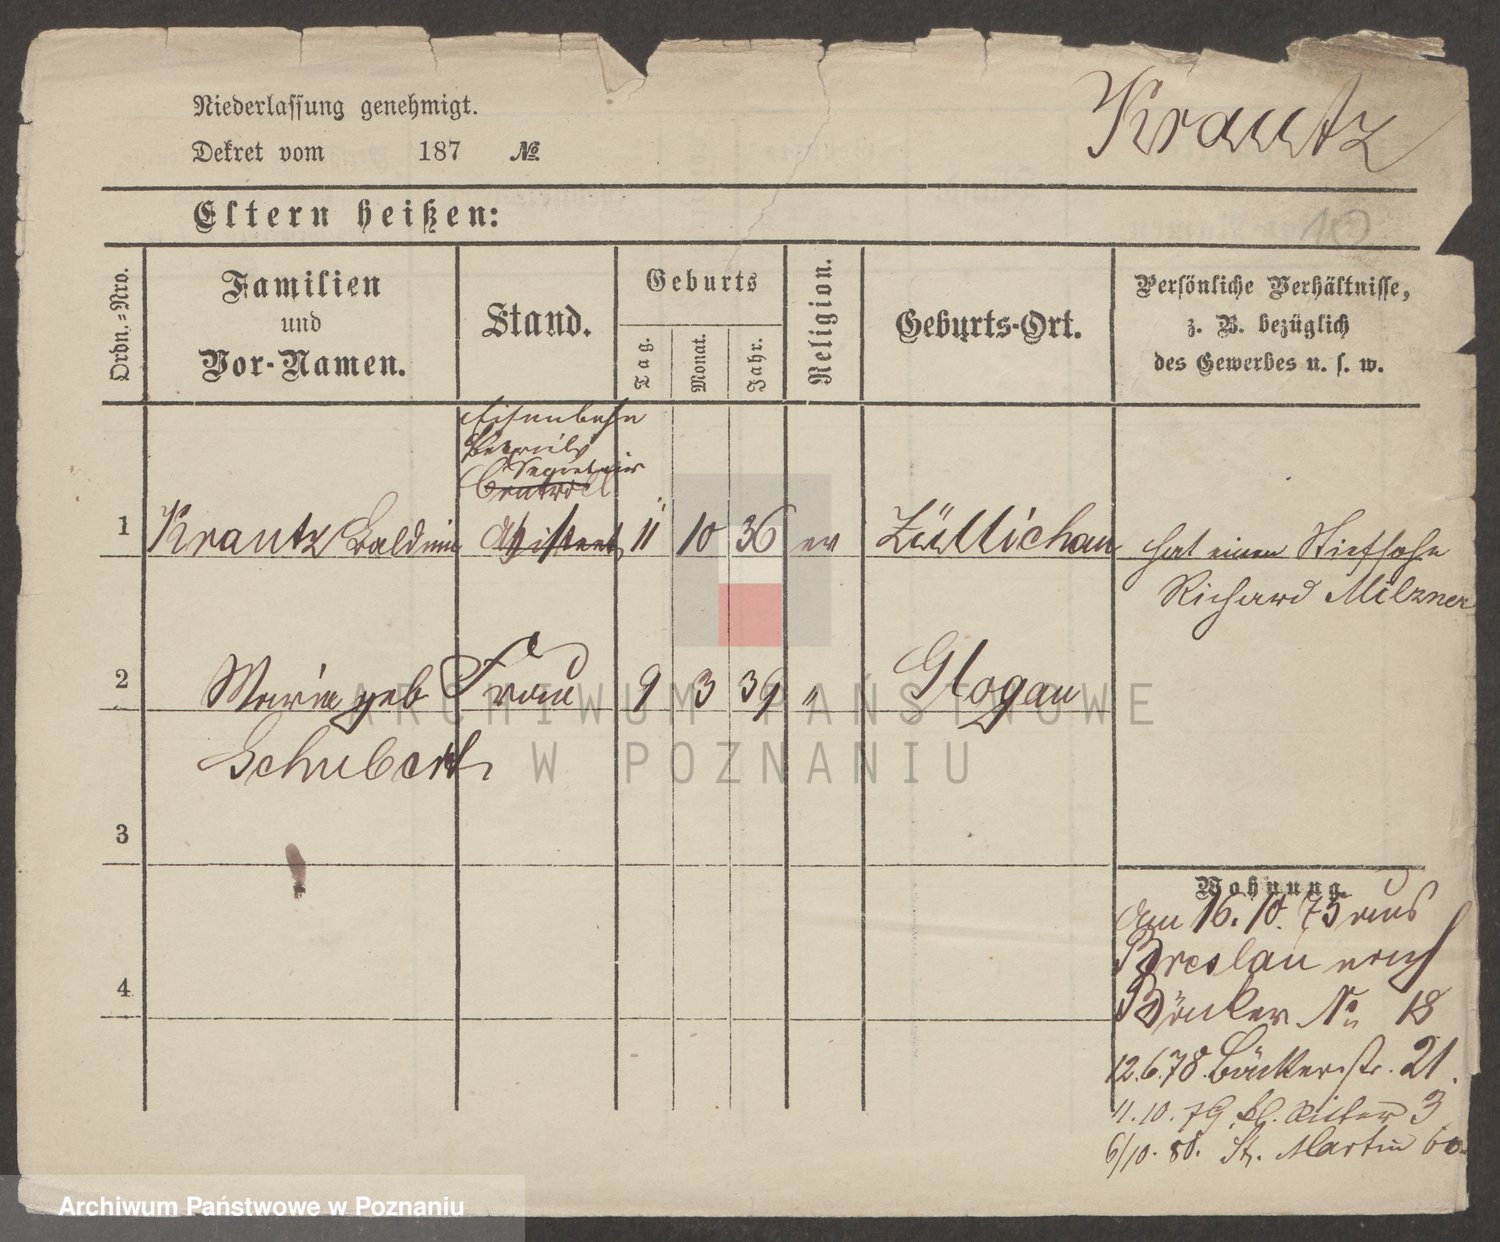 Niederlassung genehmigt.
Krautz
Dekret vom 187 №
10
Eltern heißen:
Ordn.=Nro.
Familien
und
Vor-Namen.
Stand.
Geburts
Tag.
Monat.
Jahr.
Religion.
Geburts-Ort.
Persönliche Verhältnisse,
z. B. bezüglich
des Gewerbes u. s. w.
Eisenbahn
Betriebs
Secretair
Controll
Assistent
1 Krautz Baldwin 11 10 36 ev Züllichau hat einen Stiefsohn
Richard Milzner
2 Maria geb Frau 9 3 39 " Glogau
Schubert
3
4
Wohnung
am 16. 10. 75 aus
Breslau nach
Bäcker No 18
12.6.78. Bäckerstr. 21.
11.10.79. kl. Ritter 3
6/10. 80. St. Martin 60.
ARCHIWUM PAŃSTWOWE
W POZNANIU
Archiwum Państwowe w Poznaniu